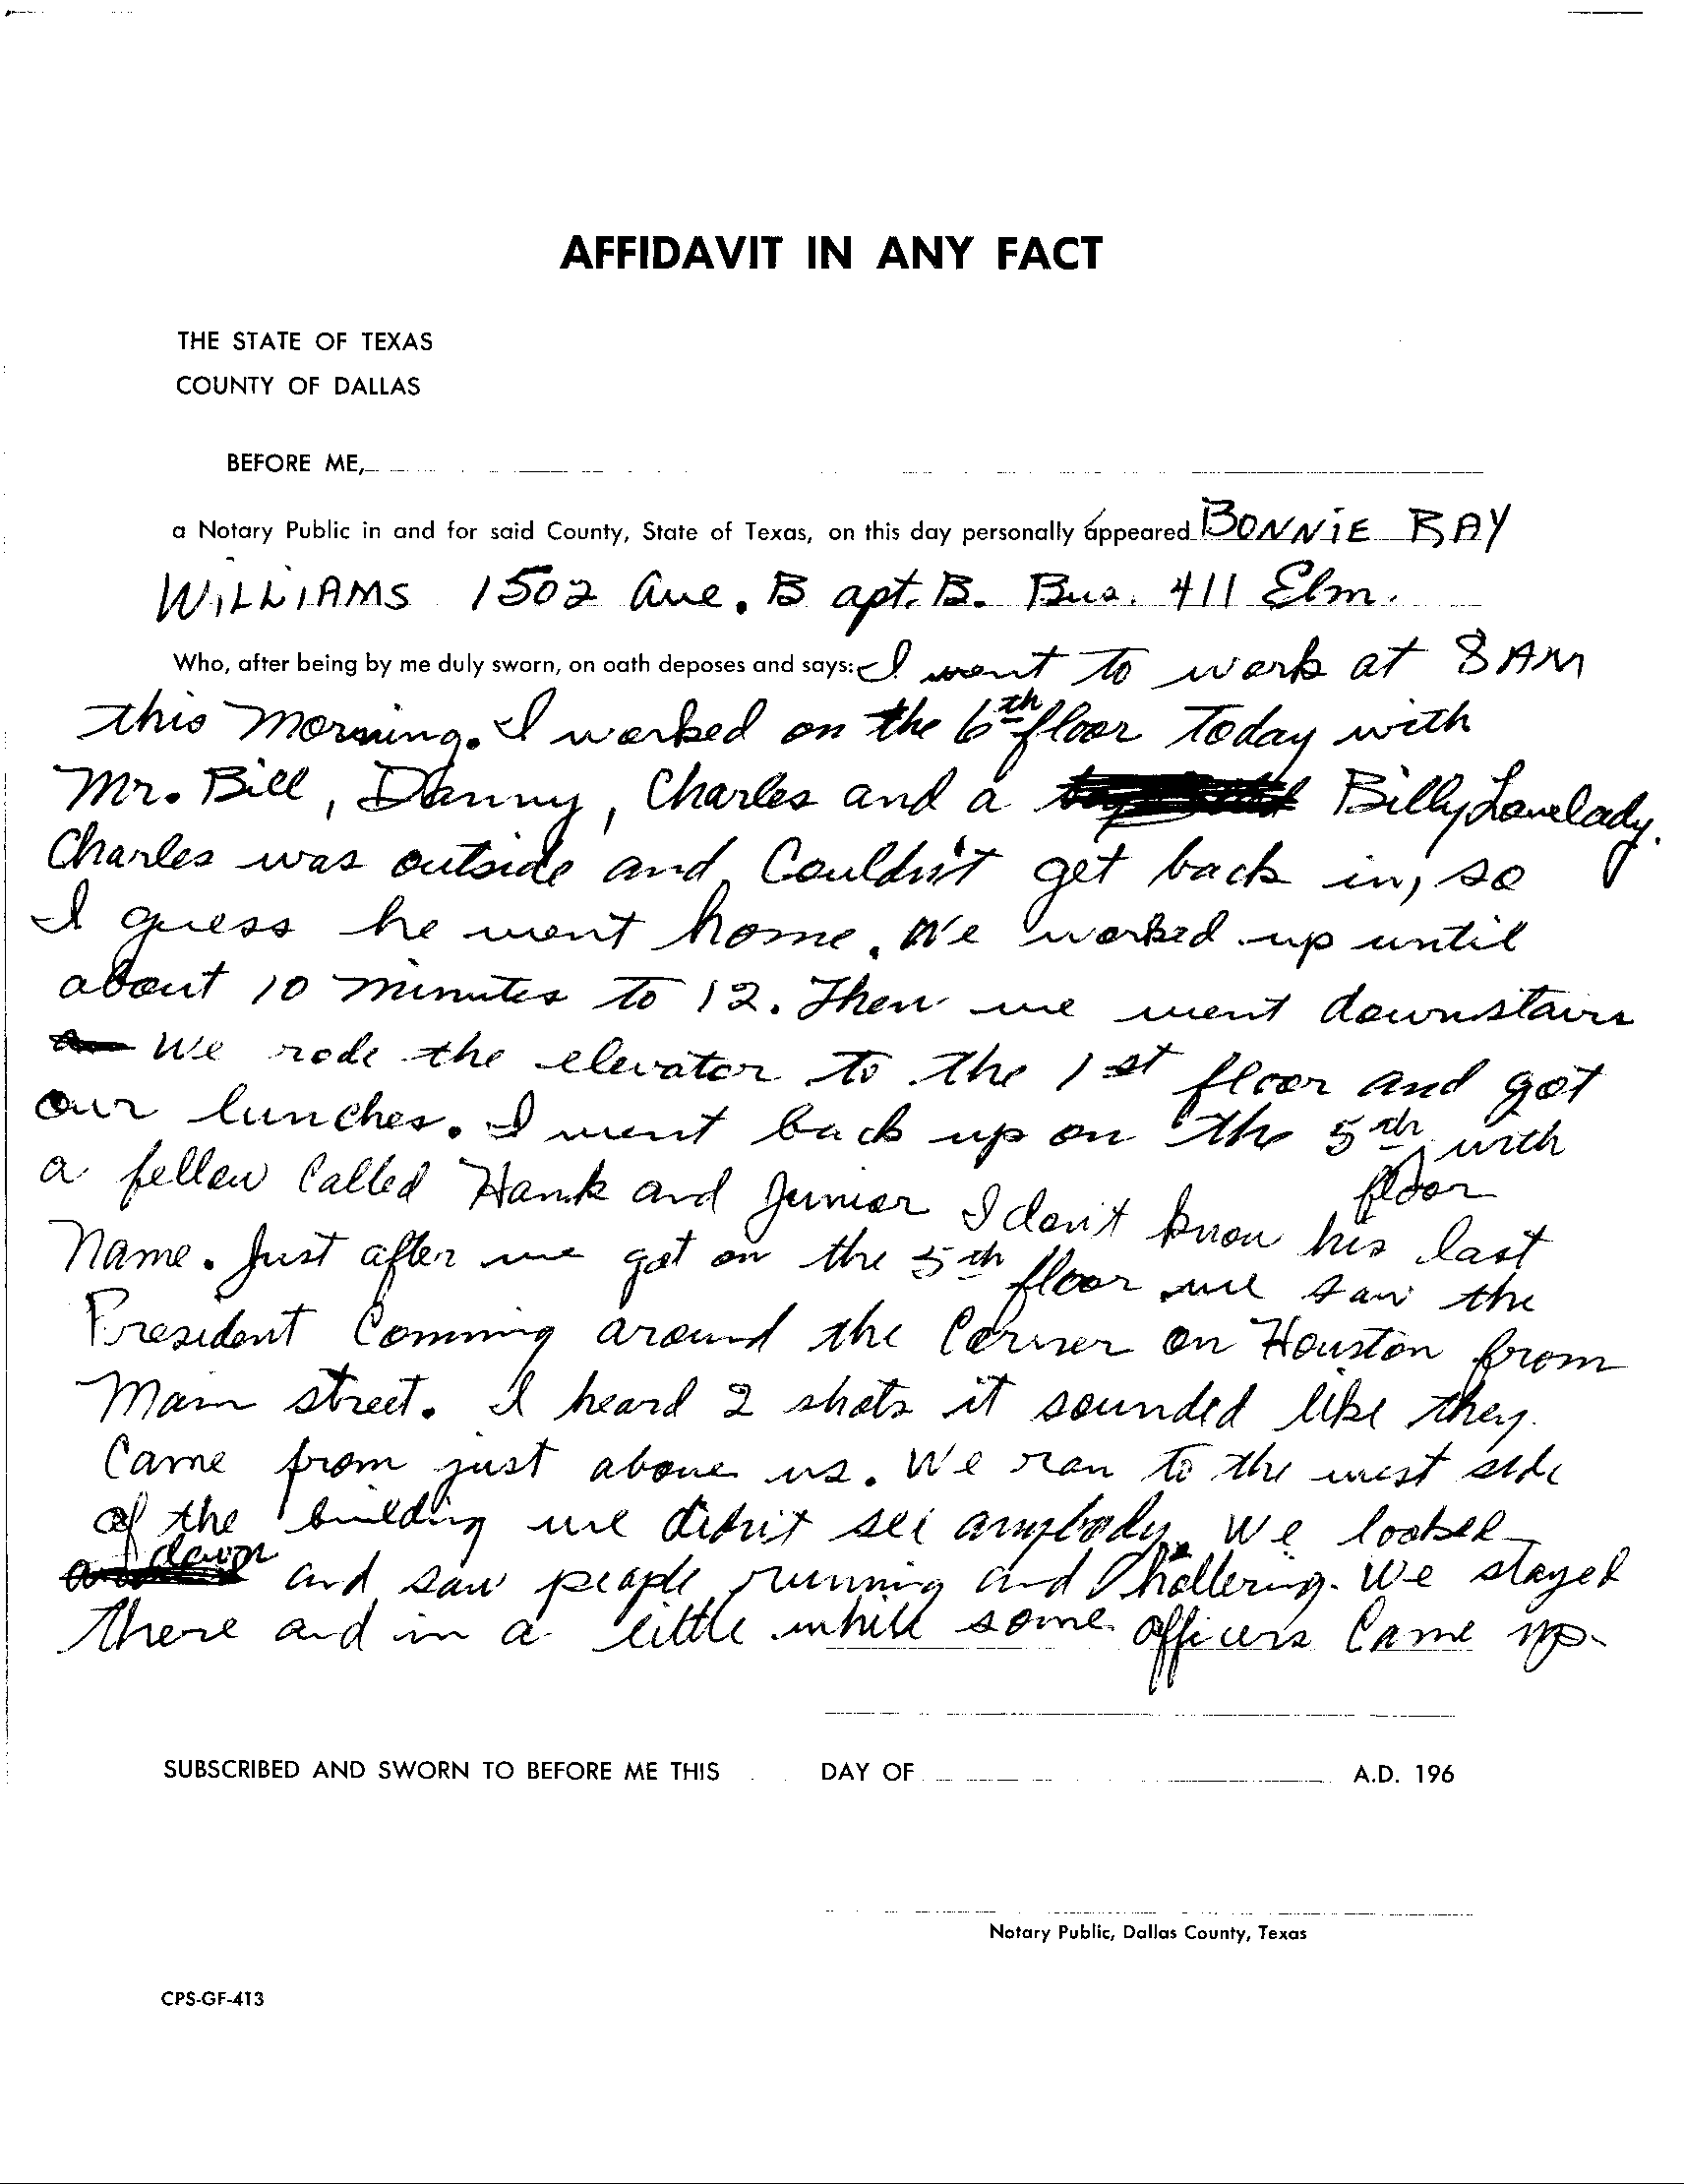 AFFIDAVIT IN ANY FACT
THE STATE OF TEXAS
COUNTY OF DALLAS
BEFORE ME,
a Notary Public in and for said County, State of Texas, on this day personally appeared BONNiE RAY
WiLLiAMS 1502 Ave. B apt. B. Bus. 411 Elm.
Who, after being by me duly sworn, on oath deposes and says: I went to work at 8 AM
this morning. I worked on the 6th floor today with
Mr. Bill, Danny, Charles and a Billy Lovelady.
Charles was outside and couldn't get back in, so
I guess he went home. We worked up until
about 10 minutes to 12. Then we went downstairs
We rode the elevator to the 1st floor and got
our lunches. I went back up on the 5th floor with
a fellow called Hank and Junior I don't know his last
name. Just after we got on the 5th floor we saw the
President Comming around the Corner on Houston from
Main street. I heard 2 shots it sounded like they
Came from just above us. We ran to the west side
of the building we didn't see anybody. We looked
down and saw people running and hollering. We stayed
there and in a little while some officers Came up
SUBSCRIBED AND SWORN TO BEFORE ME THIS DAY OF A.D. 196
Notary Public, Dallas County, Texas
CPS-GF-413